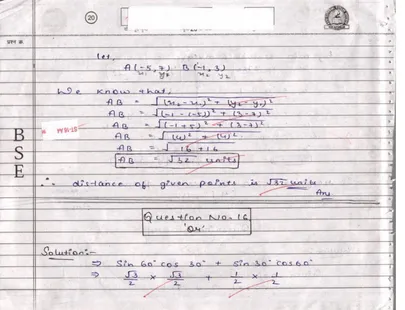 20
प्रश्न क्र.
let,
A(-5, 7) B(-1, 3)
x₁ y₁ x₂ y₂
We know that,
AB = √(x₂ - x₁)² + (y₂ - y₁)²
AB = √(-1 - (-5))² + (3 - 7)²
AB = √(-1+5)² + (3-7)²
AB = √(4)² + (4)²
AB = √16 + 16
AB = √32 units
BSE
∴ distance of given points is √32 units
Ans
Question No-16
'Or'
Solution:-
⇒ Sin 60° cos 30° + sin 30° cos 60°
⇒ √3/2 × √3/2 + 1/2 × 1/2